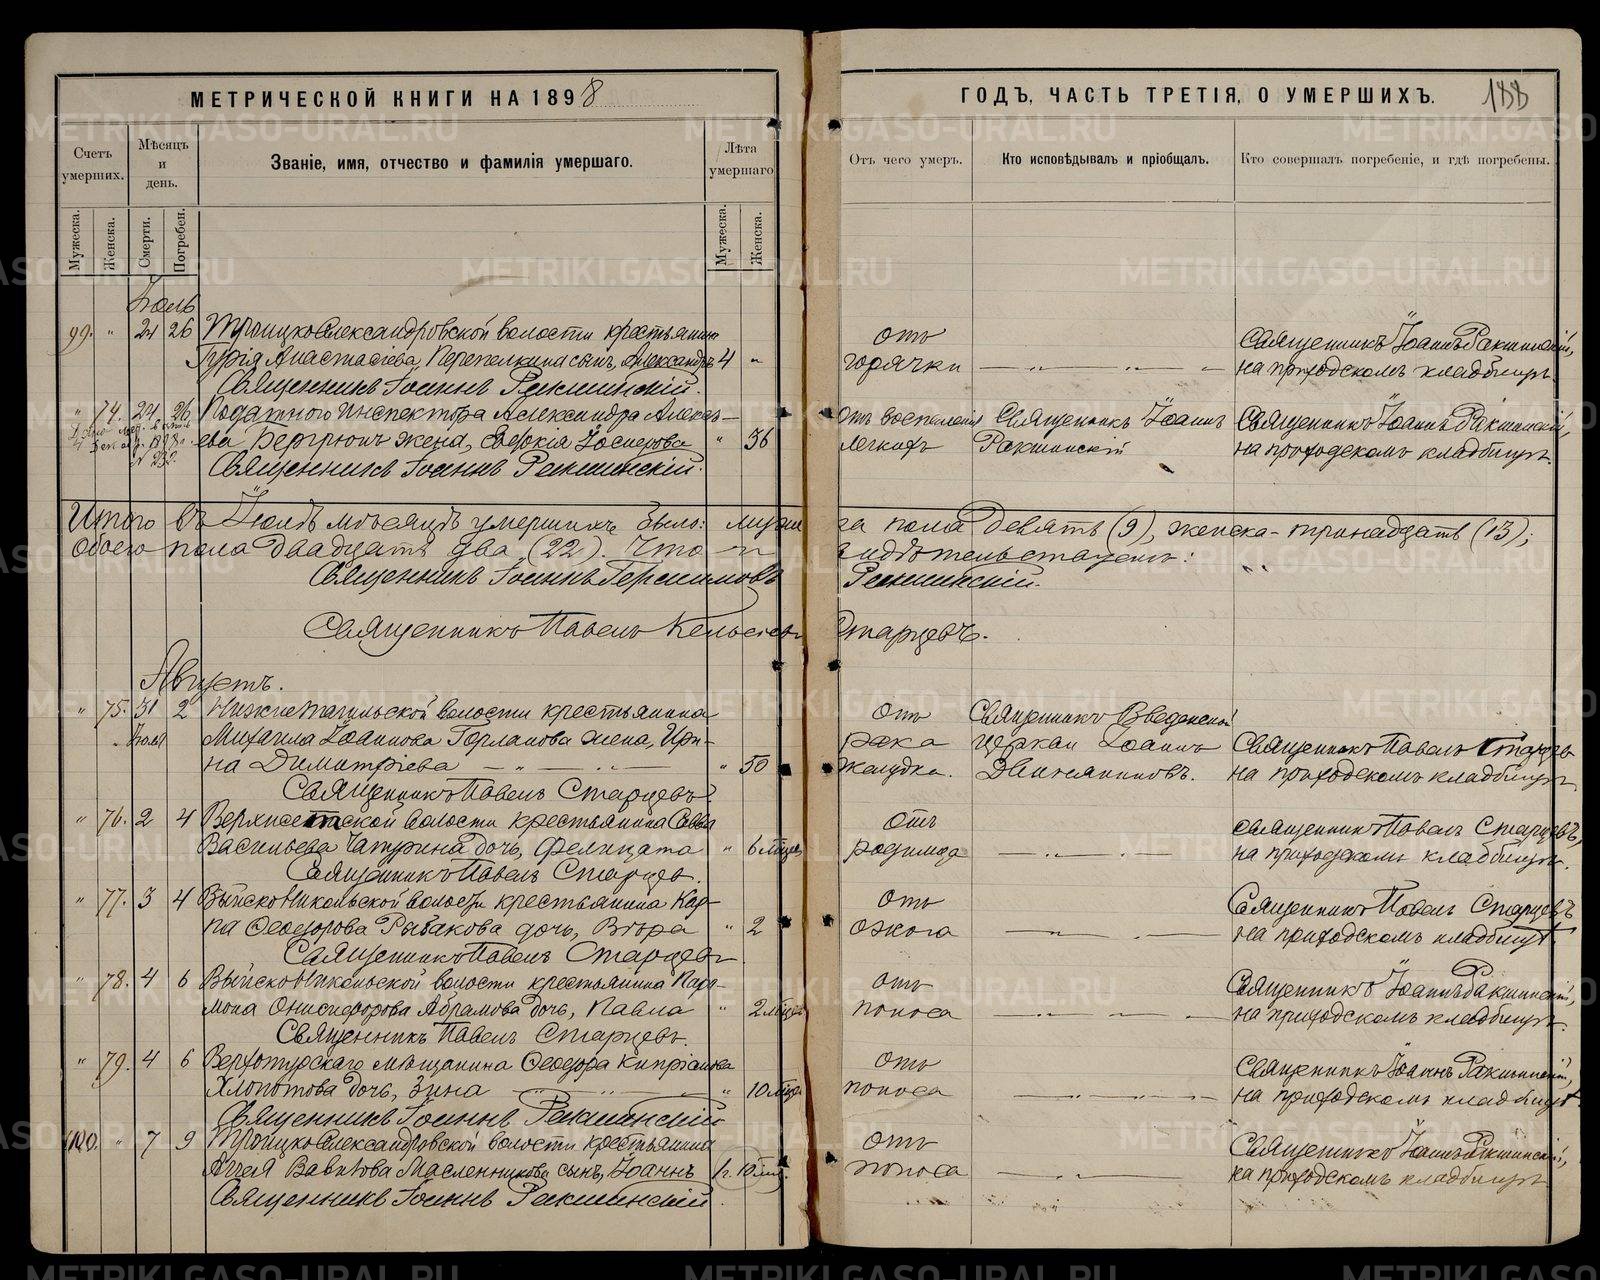 МЕТРИЧЕСКОЙ КНИГИ НА 1898
ГОДЪ, ЧАСТЬ ТРЕТІЯ, О УМЕРШИХЪ.
188
Счетъ умерших.
Мѣсяцъ и день.
Званіе, имя, отчество и фамилія умершаго.
Лѣта умершаго
Отъ чего умеръ.
Кто исповѣдывалъ и пріобщалъ.
Кто совершалъ погребеніе, и гдѣ погребены.
Мужеска.
Женска.
Смерти.
Погребен.
Мужеска.
Женска.
Іюль
99. " 24 26 Троицко Александровской волости крестьянина
Гурія Анастасіева Перепелкина сынъ, Александръ 4 "
Священникъ Іоаннъ Ракшинскій.
отъ
горячки
Священникъ Іоаннъ Ракшинскій,
на приходскомъ кладбищѣ.
" 74. 24. 26. Податного Инспектора Александра Алексѣ-
ева жена, Евдокія " 36
Священникъ Іоаннъ Ракшинскій.
Отъ воспаленія
легкихъ
Священникъ Іоаннъ
Ракшинскій
Священникъ Іоаннъ Ракшинскій,
на приходскомъ кладбищѣ.
Итого въ Іюлѣ мѣсяцѣ умершихъ было: мужеска пола девять (9), женска - тринадцать (13);
обоего пола двадцать два (22). Что и свидѣтельствуемъ:
Священникъ Іоаннъ Герасимовъ Ракшинскій.
Священникъ Павелъ Старцевъ.
Августъ.
" 75. 31 2 Нижнетагильской волости крестьянина
Іюля Михаила Іоаннова Горланова жена, Ири-
на Димитріева " 50
Священникъ Павелъ Старцевъ.
отъ
рака
желудка.
Священникъ Введенской
церкви Іоаннъ
Двиняниновъ.
Священникъ Павелъ Старцевъ
на приходскомъ кладбищѣ
" 76. 2 4 Верхисетской волости крестьянина Саввы
Васильева Чатурина дочь, Фелицата " 6 мѣсяц
Священникъ Павелъ Старцевъ.
отъ
родимца
Священникъ Павелъ Старцевъ,
на приходскомъ кладбищѣ.
" 77. 3 4 Выйско Никольской волости крестьянина Кар-
па Ѳеодорова Рыбакова дочь, Вѣра " 2
Священникъ Павелъ Старцевъ.
отъ
ожога
Священникъ Павелъ Старцевъ
на приходскомъ кладбищѣ
" 78. 4 6 Выйско Никольской волости крестьянина Пара-
мона Онисифорова Абрамова дочь, Павла " 2 мѣсяц
Священникъ Павелъ Старцевъ.
отъ
поноса
Священникъ Іоаннъ Ракшинскій,
на приходскомъ кладбищѣ.
" 79. 4 6 Верхотурскаго мѣщанина Ѳеодора Кипріанова
Хлопотова дочь, Зина " 10 мѣсяц
Священникъ Іоаннъ Ракшинскій
отъ
поноса
Священникъ Іоаннъ Ракшинскій,
на приходскомъ кладбищѣ
100. " 7 9 Троицко Александровской волости крестьянина
Аггея Вавилова Масленникова сынъ, Іоаннъ 1 г. 10 мѣс.
Священникъ Іоаннъ Ракшинскій.
отъ
поноса
Священникъ Іоаннъ Ракшинскій,
на приходскомъ кладбищѣ
METRIKI.GASO-URAL.RU